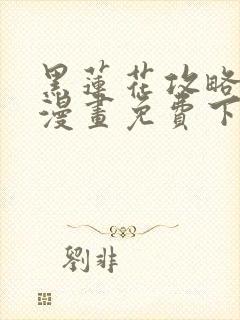 黑蓮花攻略
漫畫免費下
劉非